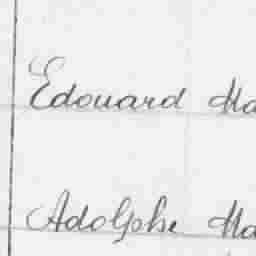 Edouard Ma
Adolphe Ma